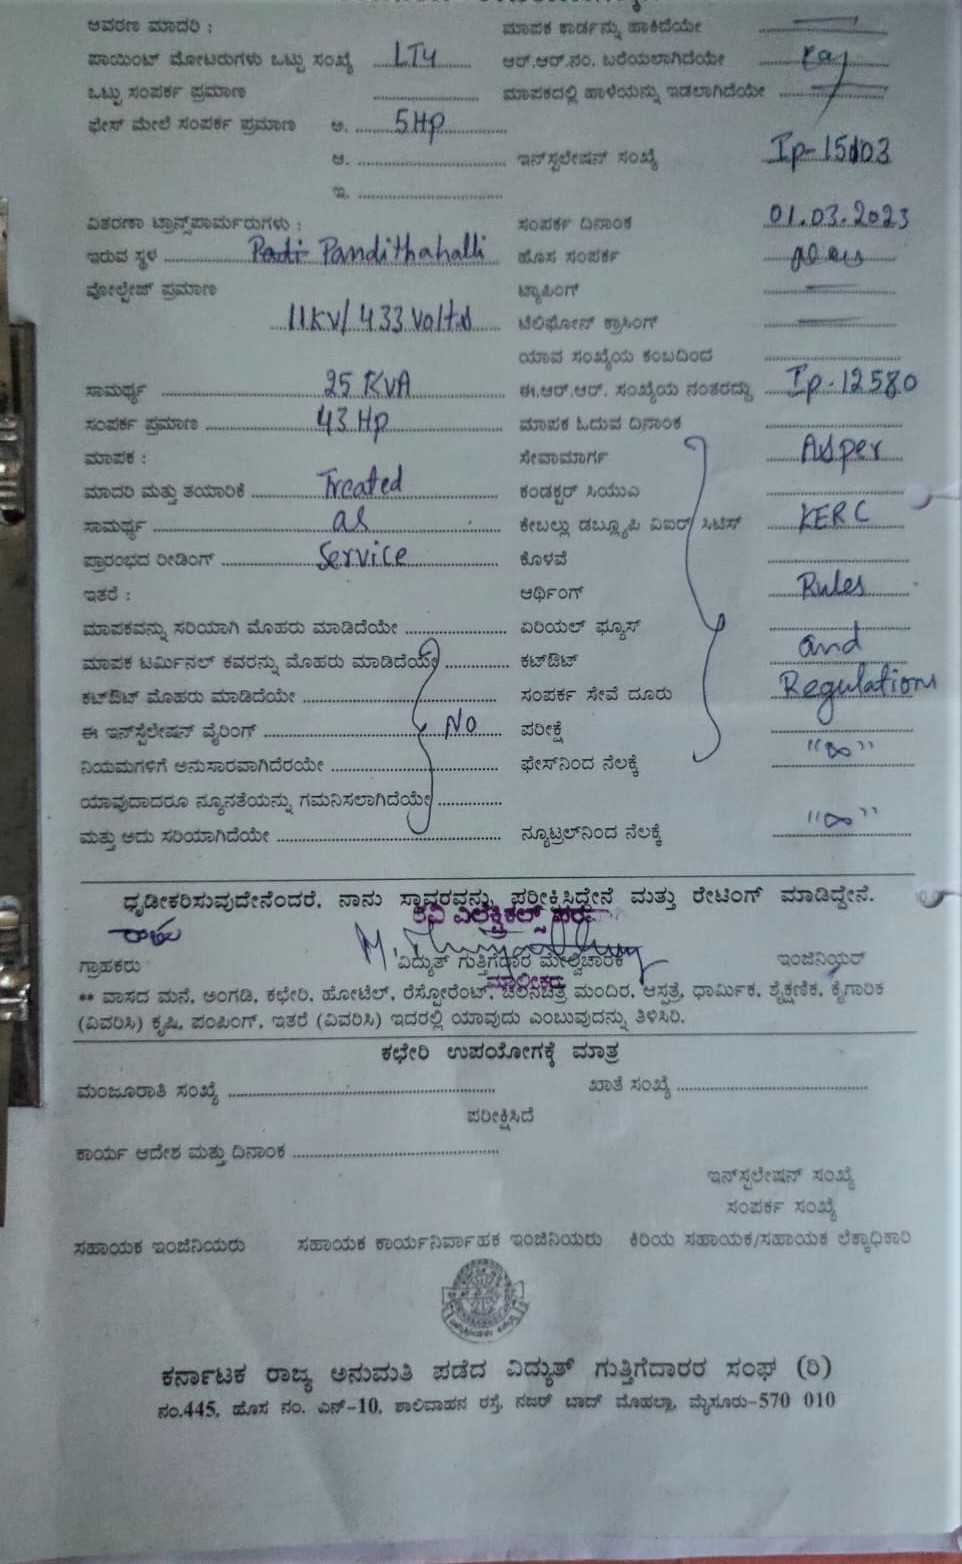 ಆವರಣ ಮಾದರಿ : ಮಾಪಕ ಕಾರ್ಡನ್ನು ಹಾಕಿದೆಯೇ
ಪಾಯಿಂಟ್ ಮೋಟರುಗಳು ಒಟ್ಟು ಸಂಖ್ಯೆ LT4 ಆರ್.ಆರ್.ನಂ. ಬರೆಯಲಾಗಿದೆಯೇ
ಒಟ್ಟು ಸಂಪರ್ಕ ಪ್ರಮಾಣ ಮಾಪಕದಲ್ಲಿ ಹಾಳೆಯನ್ನು ಇಡಲಾಗಿದೆಯೇ
ಫೇಸ್ ಮೇಲೆ ಸಂಪರ್ಕ ಪ್ರಮಾಣ ಅ. 5Hp
ಆ. ಇನ್‌ಸ್ಟಲೇಷನ್ ಸಂಖ್ಯೆ Ip-15103
ಇ.
ವಿತರಣಾ ಟ್ರಾನ್ಸ್‌ಪಾರ್ಮರುಗಳು : ಸಂಪರ್ಕ ದಿನಾಂಕ 01.03.2023
ಇರುವ ಸ್ಥಳ Pandithahalli ಹೊಸ ಸಂಪರ್ಕ
ವೋಲ್ಟೇಜ್ ಪ್ರಮಾಣ ಟ್ಯಾಪಿಂಗ್
11KV/433 Volts ಟೆಲಿಫೋನ್ ಕ್ರಾಸಿಂಗ್
ಯಾವ ಸಂಖ್ಯೆಯ ಕಂಬದಿಂದ
ಸಾಮರ್ಥ್ಯ 25 KVA ಈ.ಆರ್.ಆರ್. ಸಂಖ್ಯೆಯ ನಂತರದ್ದು Ip-12580
ಸಂಪರ್ಕ ಪ್ರಮಾಣ 43 Hp ಮಾಪಕ ಓದುವ ದಿನಾಂಕ
ಮಾಪಕ : ಸೇವಾಮಾರ್ಗ Asper
ಮಾದರಿ ಮತ್ತು ತಯಾರಿಕೆ Treated ಕಂಡಕ್ಟರ್ ಸಿಯುಎ
ಸಾಮರ್ಥ್ಯ as ಕೇಬಲ್ಲು ಡಬ್ಲ್ಯೂಪಿ ವಿಐರ್ ಸಿಟಿಸ್ KERC
ಪ್ರಾರಂಭದ ರೀಡಿಂಗ್ Service ಕೊಳವೆ
ಇತರೆ : ಆರ್ಥಿಂಗ್ Rules
ಮಾಪಕವನ್ನು ಸರಿಯಾಗಿ ಮೊಹರು ಮಾಡಿದೆಯೇ ಏರಿಯಲ್ ಫ್ಯೂಸ್
ಮಾಪಕ ಟರ್ಮಿನಲ್ ಕವರನ್ನು ಮೊಹರು ಮಾಡಿದೆಯೇ ಕಟ್‌ಔಟ್ and
ಕಟ್‌ಔಟ್ ಮೊಹರು ಮಾಡಿದೆಯೇ ಸಂಪರ್ಕ ಸೇವೆ ದೂರು Regulations
ಈ ಇನ್‌ಸ್ಟಲೇಷನ್ ವೈರಿಂಗ್ NO ಪರೀಕ್ಷೆ
ನಿಯಮಗಳಿಗೆ ಅನುಸಾರವಾಗಿದೆರಯೇ ಫೇಸ್‌ನಿಂದ ನೆಲಕ್ಕೆ "∞"
ಯಾವುದಾದರೂ ನ್ಯೂನತೆಯನ್ನು ಗಮನಿಸಲಾಗಿದೆಯೇ
ಮತ್ತು ಅದು ಸರಿಯಾಗಿದೆಯೇ ನ್ಯೂಟ್ರಲ್‌ನಿಂದ ನೆಲಕ್ಕೆ "∞"
ಧೃಡೀಕರಿಸುವುದೇನೆಂದರೆ, ನಾನು ಸ್ಥಾವರವನ್ನು ಪರೀಕ್ಷಿಸಿದ್ದೇನೆ ಮತ್ತು ರೇಟಿಂಗ್ ಮಾಡಿದ್ದೇನೆ.
ಗ್ರಾಹಕರು ವಿದ್ಯುತ್ ಗುತ್ತಿಗೆದಾರ ಮೇಲ್ವಿಚಾರಕ ಇಂಜಿನಿಯರ್
** ವಾಸದ ಮನೆ, ಅಂಗಡಿ, ಕಛೇರಿ, ಹೋಟೆಲ್, ರೆಸ್ಟೋರೆಂಟ್, ಚಲನಚಿತ್ರ ಮಂದಿರ, ಆಸ್ಪತ್ರೆ, ಧಾರ್ಮಿಕ, ಶೈಕ್ಷಣಿಕ, ಕೈಗಾರಿಕ
(ವಿವರಿಸಿ) ಕೃಷಿ, ಪಂಪಿಂಗ್, ಇತರೆ (ವಿವರಿಸಿ) ಇದರಲ್ಲಿ ಯಾವುದು ಎಂಬುವುದನ್ನು ತಿಳಿಸಿರಿ.
ಕಛೇರಿ ಉಪಯೋಗಕ್ಕೆ ಮಾತ್ರ
ಮಂಜೂರಾತಿ ಸಂಖ್ಯೆ ಖಾತೆ ಸಂಖ್ಯೆ
ಪರೀಕ್ಷಿಸಿದೆ
ಕಾರ್ಯ ಆದೇಶ ಮತ್ತು ದಿನಾಂಕ
ಇನ್‌ಸ್ಟಲೇಷನ್ ಸಂಖ್ಯೆ
ಸಂಪರ್ಕ ಸಂಖ್ಯೆ
ಸಹಾಯಕ ಇಂಜಿನಿಯರು ಸಹಾಯಕ ಕಾರ್ಯನಿರ್ವಾಹಕ ಇಂಜಿನಿಯರು ಕಿರಿಯ ಸಹಾಯಕ/ಸಹಾಯಕ ಲೆಕ್ಕಾಧಿಕಾರಿ
ಕರ್ನಾಟಕ ರಾಜ್ಯ ಅನುಮತಿ ಪಡೆದ ವಿದ್ಯುತ್ ಗುತ್ತಿಗೆದಾರರ ಸಂಘ (ರಿ)
ನಂ.445, ಹೊಸ ನಂ. ಎನ್-10, ಶಾಲಿವಾಹನ ರಸ್ತೆ, ನಜರ್ ಬಾದ್ ಮೊಹಲ್ಲಾ, ಮೈಸೂರು-570 010